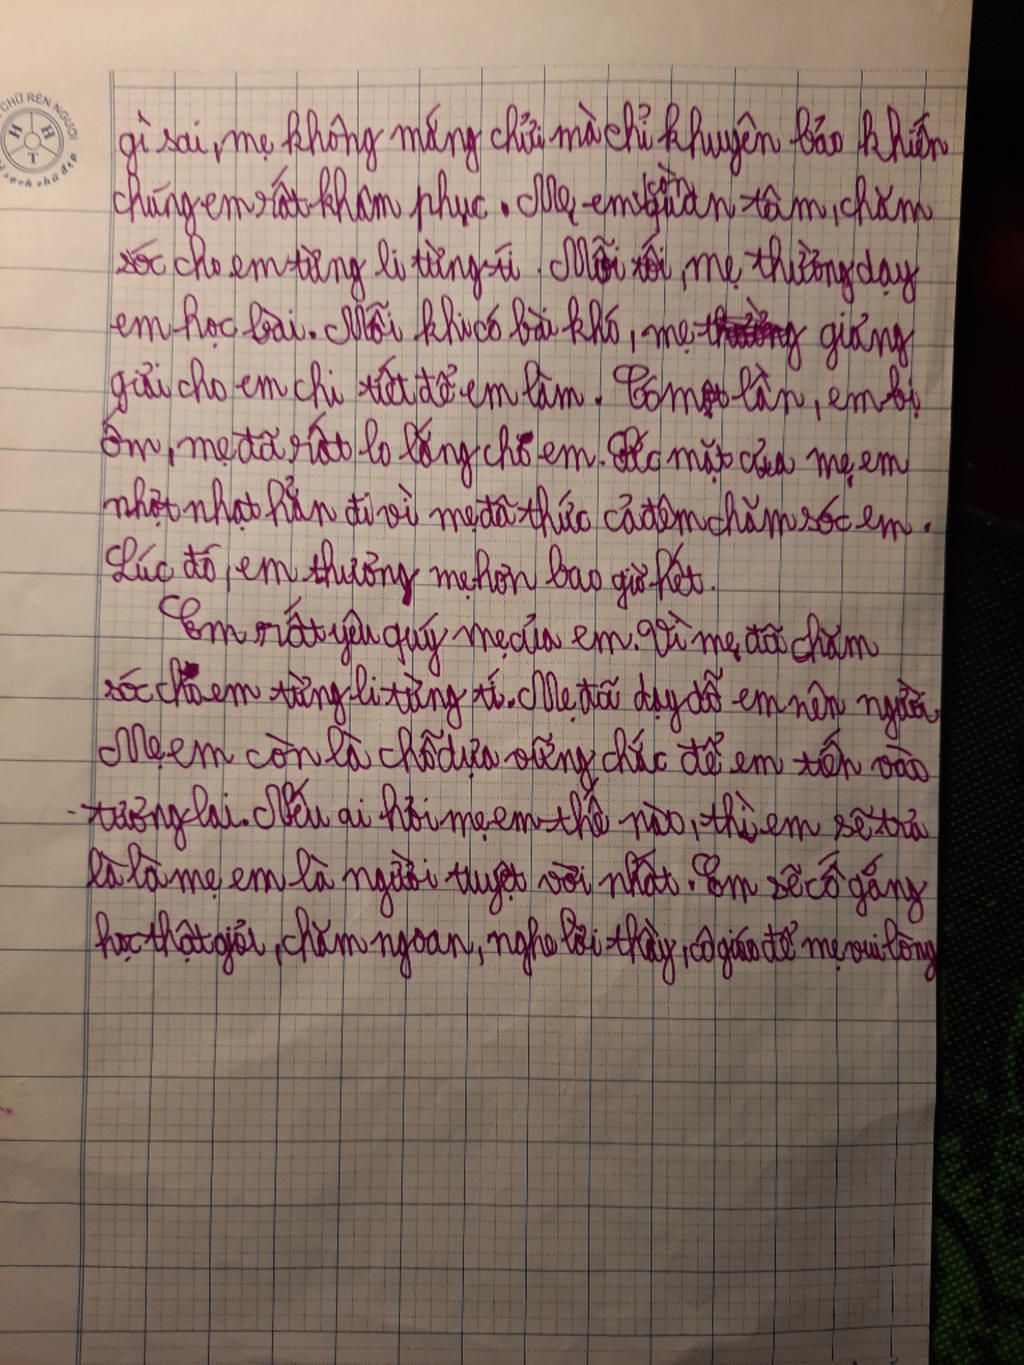 CHỮ RÈN NGƯỜI
H H
T
sạch chữ đẹp
gì sai, mẹ không mắng chửi mà chỉ khuyên bảo khiến
chúng em rất khâm phục. Mẹ em còn quan tâm, chăm
sóc cho em từng li từng tí. Mỗi tối, mẹ thường dạy
em học bài. Mỗi khi có bài khó, mẹ giảng
giải cho em chi tiết để em làm. Có một lần, em bị
ốm, mẹ đã rất lo lắng cho em. Sắc mặt của mẹ em
nhợt nhạt hẳn đi vì mẹ đã thức cả đêm chăm sóc em.
Lúc đó, em thương mẹ hơn bao giờ hết.
Em rất yêu quý mẹ của em. Vì mẹ đã chăm
sóc cho em từng li từng tí. Mẹ đã dạy dỗ em nên người.
Mẹ em còn là chỗ dựa vững chắc để em tiến vào
tương lai. Nếu ai hỏi mẹ em thế nào, thì em sẽ trả
là là mẹ em là người tuyệt vời nhất. Em sẽ cố gắng
học thật giỏi, chăm ngoan, nghe lời thầy, cô giáo để mẹ vui lòng